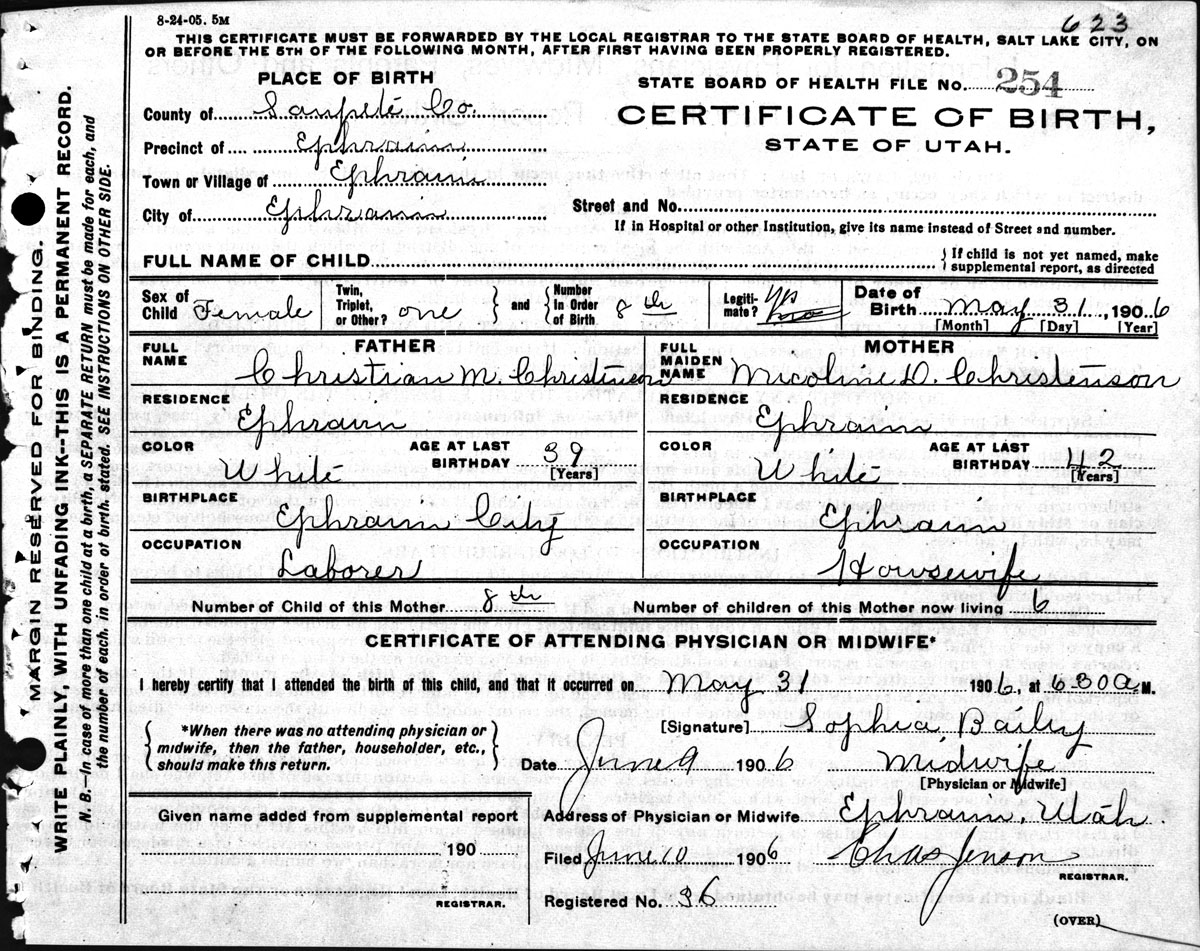 8-24-05. 5M
623
THIS CERTIFICATE MUST BE FORWARDED BY THE LOCAL REGISTRAR TO THE STATE BOARD OF HEALTH, SALT LAKE CITY, ON
OR BEFORE THE 5TH OF THE FOLLOWING MONTH, AFTER FIRST HAVING BEEN PROPERLY REGISTERED.
PLACE OF BIRTH
STATE BOARD OF HEALTH FILE NO. 254
County of Sanpete Co.
CERTIFICATE OF BIRTH,
STATE OF UTAH.
Precinct of Ephraim
Town or Village of Ephraim
City of Ephraim
Street and No.
If in Hospital or other Institution, give its name instead of Street and number.
FULL NAME OF CHILD
{ If child is not yet named, make
supplemental report, as directed
Sex of Child Female
Twin, Triplet, or Other? one } and { Number In Order of Birth 8th
Legiti-mate? yes
Date of Birth May 31, 1906
[Month] [Day] [Year]
FATHER
FULL NAME Christian M. Christenson
RESIDENCE Ephraim
COLOR White AGE AT LAST BIRTHDAY 39 [Years]
BIRTHPLACE Ephraim City
OCCUPATION Laborer
MOTHER
FULL MAIDEN NAME Nicoline D. Christenson
RESIDENCE Ephraim
COLOR White AGE AT LAST BIRTHDAY 42 [Years]
BIRTHPLACE Ephraim
OCCUPATION Housewife
Number of Child of this Mother 8th Number of children of this Mother now living 6
CERTIFICATE OF ATTENDING PHYSICIAN OR MIDWIFE*
I hereby certify that I attended the birth of this child, and that it occurred on May 31 1906, at 630 a M.
{ *When there was no attending physician or
midwife, then the father, householder, etc.,
should make this return. }
[Signature] Sophia Baily
Date June 9 1906 Midwife
[Physician or Midwife]
Given name added from supplemental report
190
REGISTRAR.
Address of Physician or Midwife Ephraim, Utah.
Filed June 10 1906 Chas Jenson
REGISTRAR.
Registered No. 36
(OVER)
MARGIN RESERVED FOR BINDING.
WRITE PLAINLY, WITH UNFADING INK--THIS IS A PERMANENT RECORD.
N. B.--In case of more than one child at a birth, a SEPARATE RETURN must be made for each, and
the number of each, in order of birth, stated. SEE INSTRUCTIONS ON OTHER SIDE.